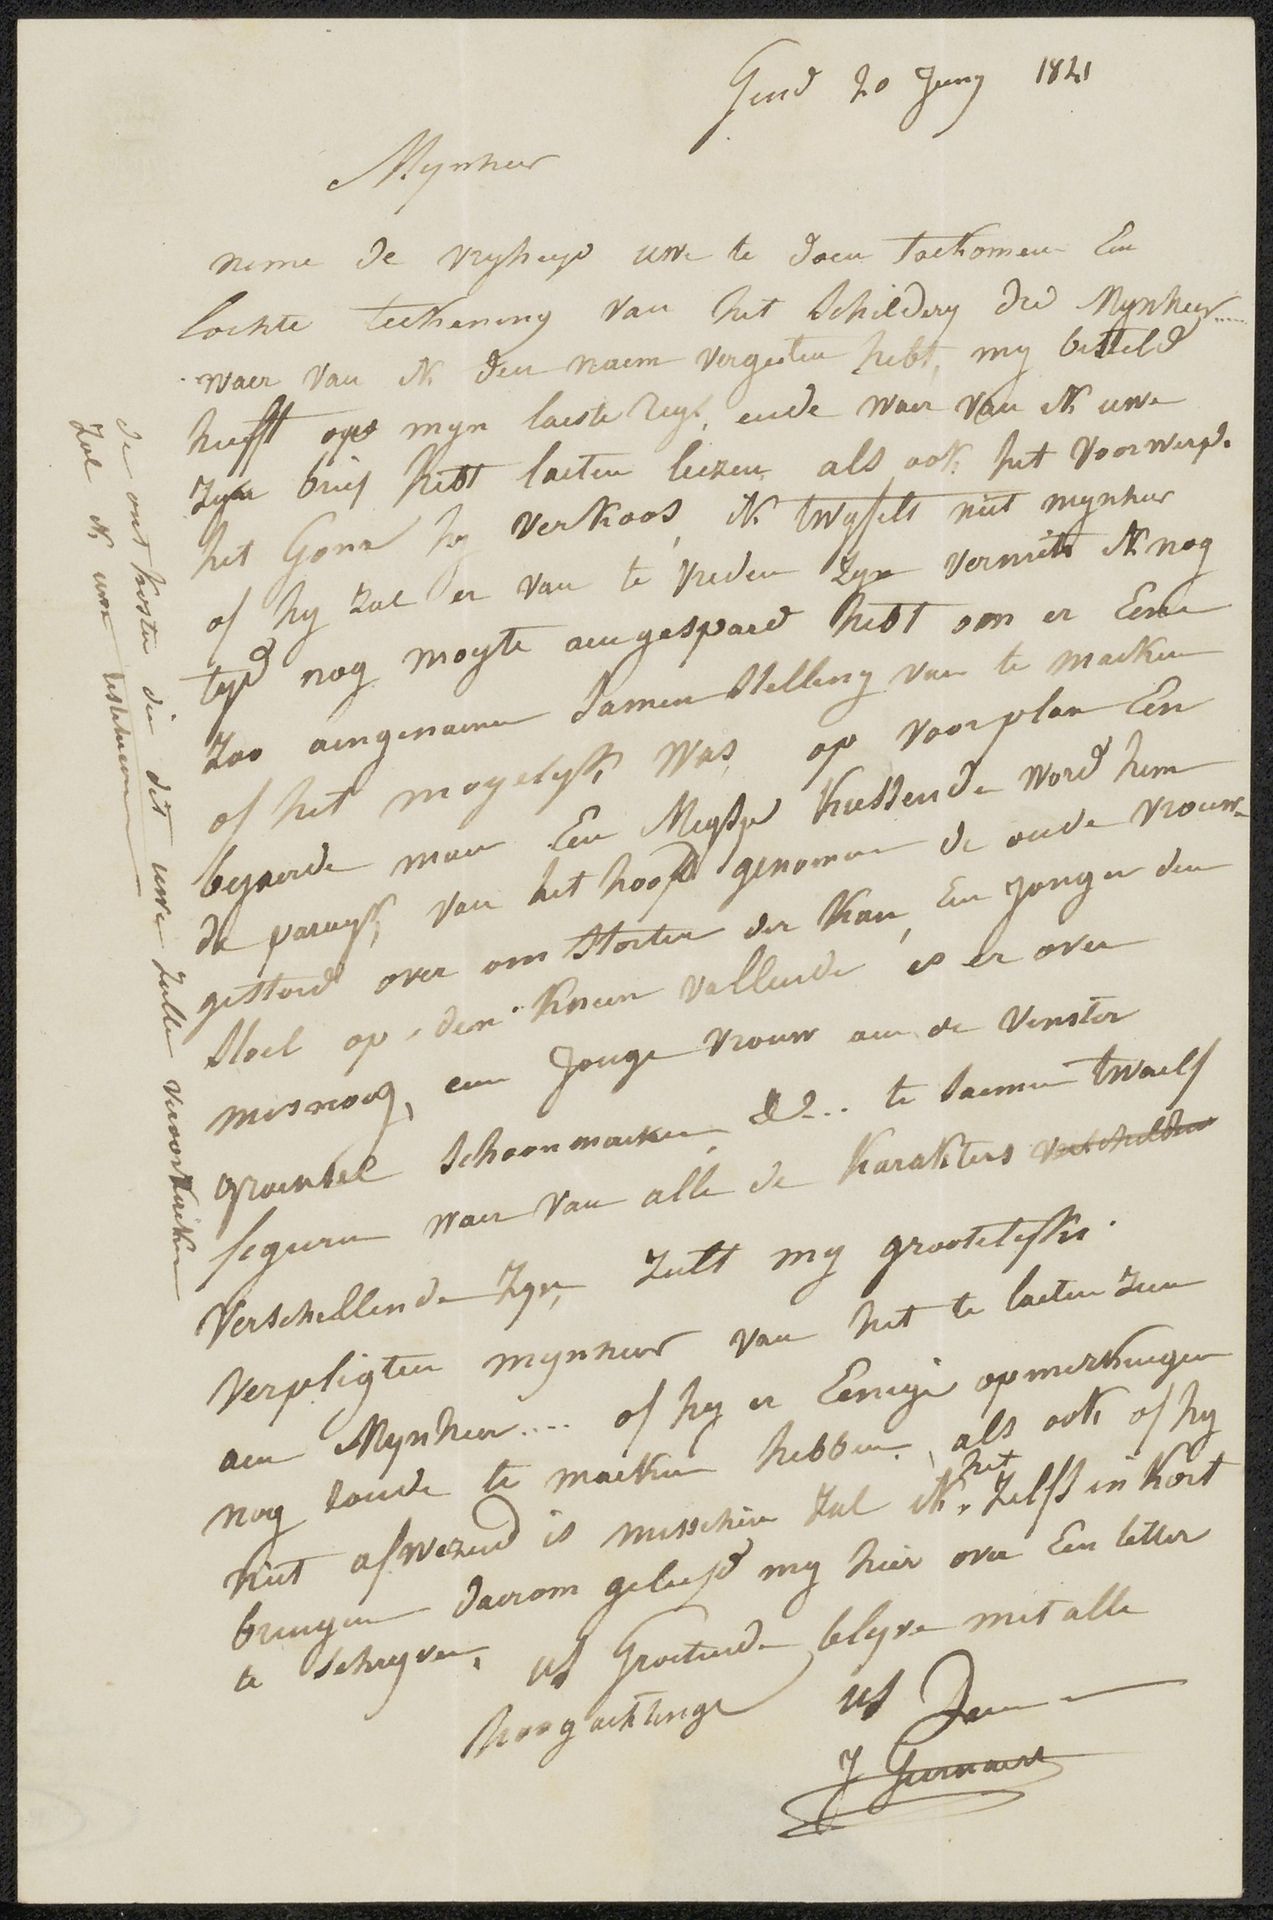 Gend 20 Juny 1841
Mynheer
neme de vryheyd uwe te doen toekomen Een
lochte teekening van het Schildery die Mynheer.....
waer van ik den naem vergeeten hebt, my besteld
heeft op myn laeste reys, ende waer van ik uwe
zyne brief hebt laeten leezen, als ook het voorwerp.
het Gone hy verkoos, ik twyfelt niet mynheer
of hy zal er van te vreden zyn vermits ik nog
tyd nog moyte aengespaerd hebt om er Eene
zoo aengenaeme Samenstelling van te maeken
of het mogelyk was, op voorplan Een
bejaerde man Een Meysje kussende word hem
de paruyk, van het hoofd genomen de oude vrouwe
gestoord over omstorten der kan, Een jonger den
stoel op den kneen vallende is er over
misnoeg, een Jonge vrouw aen de venster
groensel schoonmaeken, &.. te saemen twaelf
feguren waer van alle de karakters verschillen
verschellende zyn, zult my grootelyks
verpligten mynheer van het te laeten zien
aen Mynheer.... of hy er Eenige opmerkingen
nog zoude te maeken hebben, als ook of hy
niet afwezend is misschien zal ik het zelfs in kort
brengen daerom geliefd my hier over Een letter
te schryven, us Groetende blyve met alle
hoogachtinge us Dien
J Geernaert
de onkosten die dit uwe zulle veroorzaeken
zal ik uwe